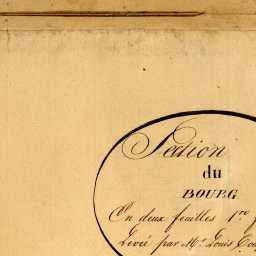 Section
du
BOURG
En deux feuilles 1re
Levée par Mr. Louis